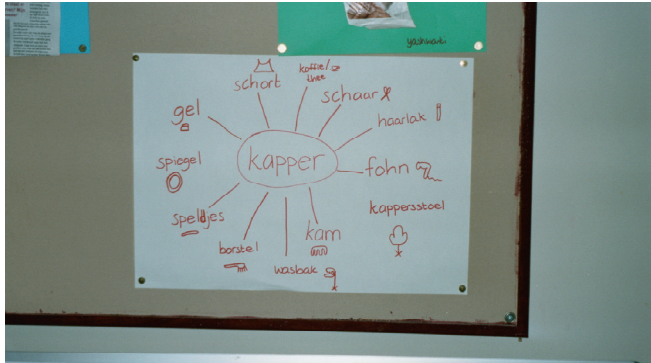 yashwari
schort
koffie/
thee
schaar
haarlak
fohn
kappersstoel
kam
wasbak
borstel
speldjes
spiegel
gel
kapper